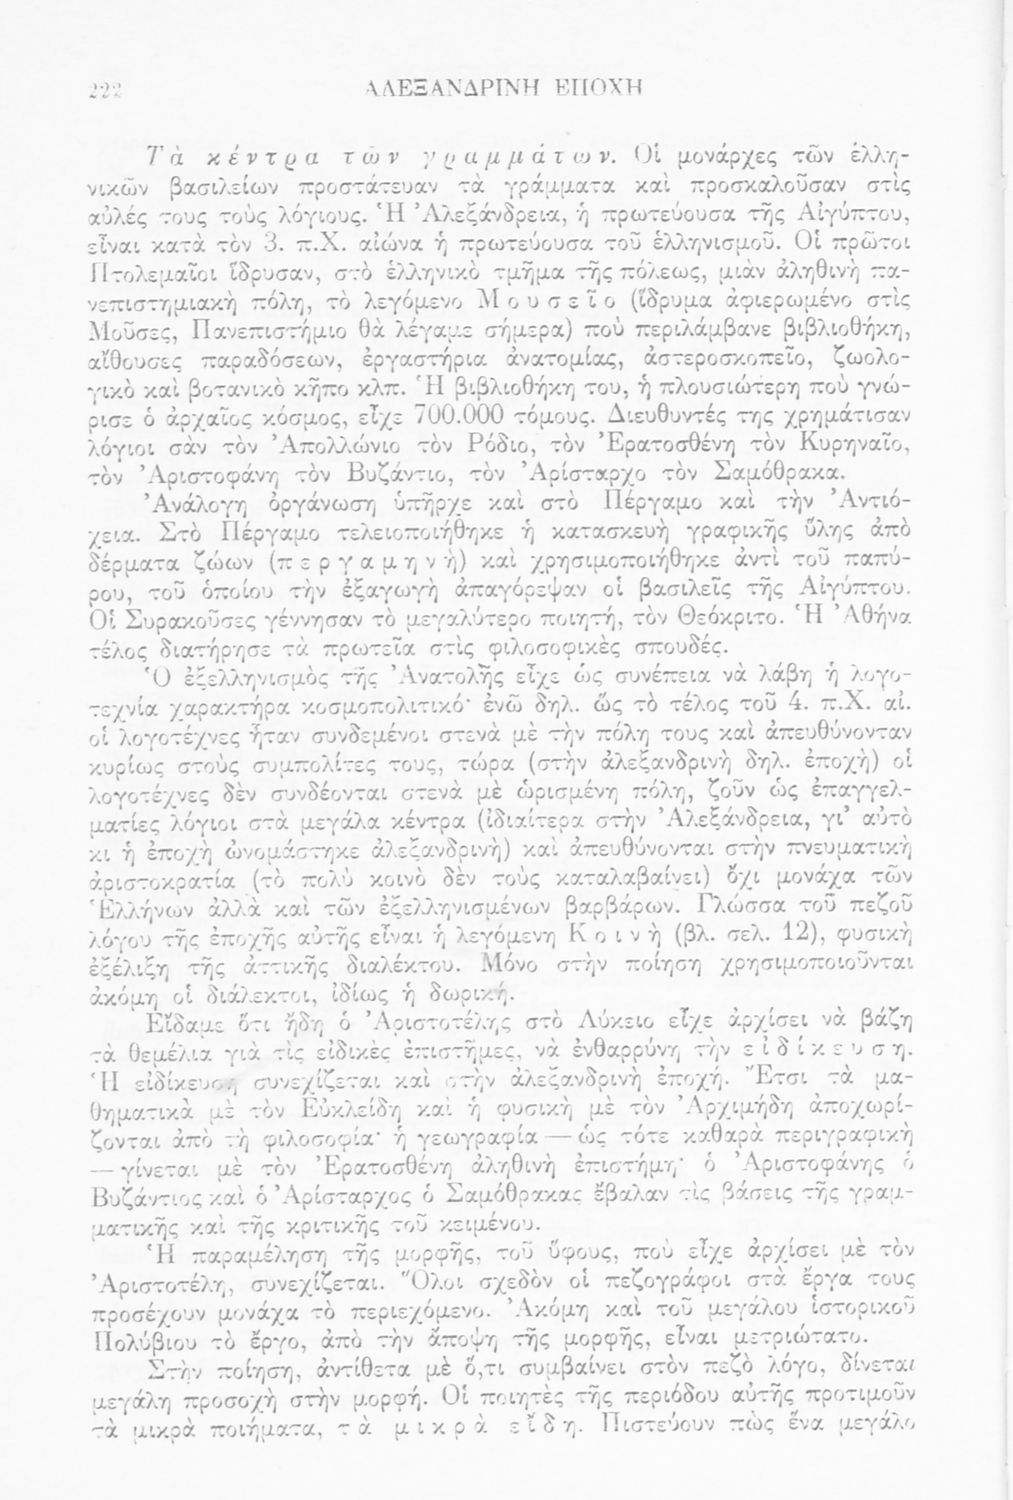 222
ΑΛΕΞΑΝΔΡΙΝΗ ΕΠΟΧΗ
Τὰ κέντρα τῶν γραμμάτων. Οἱ μονάρχες τῶν ἑλλη-
νικῶν βασιλείων προστάτευαν τὰ γράμματα καὶ προσκαλοῦσαν στὶς
αὐλές τους τοὺς λόγιους. Ἡ Ἀλεξάνδρεια, ἡ πρωτεύουσα τῆς Αἰγύπτου,
εἶναι κατὰ τὸν 3. π.Χ. αἰώνα ἡ πρωτεύουσα τοῦ ἑλληνισμοῦ. Οἱ πρῶτοι
Πτολεμαῖοι ἵδρυσαν, στὸ ἑλληνικὸ τμῆμα τῆς πόλεως, μιὰν ἀληθινὴ πα-
νεπιστημιακὴ πόλη, τὸ λεγόμενο Μουσεῖο (ἵδρυμα ἀφιερωμένο στὶς
Μοῦσες, Πανεπιστήμιο θὰ λέγαμε σήμερα) ποὺ περιλάμβανε βιβλιοθήκη,
αἴθουσες παραδόσεων, ἐργαστήρια ἀνατομίας, ἀστεροσκοπεῖο, ζωολο-
γικὸ καὶ βοτανικὸ κῆπο κλπ. Ἡ βιβλιοθήκη του, ἡ πλουσιώτερη ποὺ γνώ-
ρισε ὁ ἀρχαῖος κόσμος, εἶχε 700.000 τόμους. Διευθυντές της χρημάτισαν
λόγιοι σὰν τὸν Ἀπολλώνιο τὸν Ρόδιο, τὸν Ἐρατοσθένη τὸν Κυρηναῖο,
τὸν Ἀριστοφάνη τὸν Βυζάντιο, τὸν Ἀρίσταρχο τὸν Σαμόθρακα.
Ἀνάλογη ὀργάνωση ὑπῆρχε καὶ στὸ Πέργαμο καὶ τὴν Ἀντιό-
χεια. Στὸ Πέργαμο τελειοποιήθηκε ἡ κατασκευὴ γραφικῆς ὕλης ἀπὸ
δέρματα ζώων (περγαμηνὴ) καὶ χρησιμοποιήθηκε ἀντὶ τοῦ παπύ-
ρου, τοῦ ὁποίου τὴν ἐξαγωγὴ ἀπαγόρεψαν οἱ βασιλεῖς τῆς Αἰγύπτου.
Οἱ Συρακοῦσες γέννησαν τὸ μεγαλύτερο ποιητή, τὸν Θεόκριτο. Ἡ Ἀθήνα
τέλος διατήρησε τὰ πρωτεῖα στὶς φιλοσοφικὲς σπουδές.
Ὁ ἐξελληνισμὸς τῆς Ἀνατολῆς εἶχε ὡς συνέπεια νὰ λάβη ἡ λογο-
τεχνία χαρακτήρα κοσμοπολιτικό· ἐνῶ δηλ. ὣς τὸ τέλος τοῦ 4. π.Χ. αἰ.
οἱ λογοτέχνες ἦταν συνδεμένοι στενὰ μὲ τὴν πόλη τους καὶ ἀπευθύνονταν
κυρίως στοὺς συμπολίτες τους, τώρα (στὴν ἀλεξανδρινὴ δηλ. ἐποχὴ) οἱ
λογοτέχνες δὲν συνδέονται στενὰ μὲ ὡρισμένη πόλη, ζοῦν ὡς ἐπαγγελ-
ματίες λόγιοι στὰ μεγάλα κέντρα (ἰδιαίτερα στὴν Ἀλεξάνδρεια, γι' αὐτὸ
κι ἡ ἐποχὴ ὠνομάστηκε ἀλεξανδρινὴ) καὶ ἀπευθύνονται στὴν πνευματικὴ
ἀριστοκρατία (τὸ πολὺ κοινὸ δὲν τοὺς καταλαβαίνει) ὄχι μονάχα τῶν
Ἑλλήνων ἀλλὰ καὶ τῶν ἐξελληνισμένων βαρβάρων. Γλώσσα τοῦ πεζοῦ
λόγου τῆς ἐποχῆς αὐτῆς εἶναι ἡ λεγόμενη Κοινὴ (βλ. σελ. 12), φυσικὴ
ἐξέλιξη τῆς ἀττικῆς διαλέκτου. Μόνο στὴν ποίηση χρησιμοποιοῦνται
ἀκόμη οἱ διάλεκτοι, ἰδίως ἡ δωρική.
Εἴδαμε ὅτι ἤδη ὁ Ἀριστοτέλης στὸ Λύκειο εἶχε ἀρχίσει νὰ βάζη
τὰ θεμέλια γιὰ τὶς εἰδικὲς ἐπιστῆμες, νὰ ἐνθαρρύνη τὴν εἰδίκευση.
Ἡ εἰδίκευση συνεχίζεται καὶ στὴν ἀλεξανδρινὴ ἐποχή. Ἔτσι τὰ μα-
θηματικὰ μὲ τὸν Εὐκλείδη καὶ ἡ φυσικὴ μὲ τὸν Ἀρχιμήδη ἀποχωρί-
ζονται ἀπὸ τὴ φιλοσοφία· ἡ γεωγραφία — ὡς τότε καθαρὰ περιγραφικὴ
— γίνεται μὲ τὸν Ἐρατοσθένη ἀληθινὴ ἐπιστήμη· ὁ Ἀριστοφάνης ὁ
Βυζάντιος καὶ ὁ Ἀρίσταρχος ὁ Σαμόθρακας ἔβαλαν τὶς βάσεις τῆς γραμ-
ματικῆς καὶ τῆς κριτικῆς τοῦ κειμένου.
Ἡ παραμέληση τῆς μορφῆς, τοῦ ὕφους, ποὺ εἶχε ἀρχίσει μὲ τὸν
Ἀριστοτέλη, συνεχίζεται. Ὅλοι σχεδὸν οἱ πεζογράφοι στὰ ἔργα τους
προσέχουν μονάχα τὸ περιεχόμενο. Ἀκόμη καὶ τοῦ μεγάλου ἱστορικοῦ
Πολύβιου τὸ ἔργο, ἀπὸ τὴν ἄποψη τῆς μορφῆς, εἶναι μετριώτατο.
Στὴν ποίηση, ἀντίθετα μὲ ὅ,τι συμβαίνει στὸν πεζὸ λόγο, δίνεται
μεγάλη προσοχὴ στὴν μορφή. Οἱ ποιητὲς τῆς περιόδου αὐτῆς προτιμοῦν
τὰ μικρὰ ποιήματα, τὰ μικρὰ εἴδη. Πιστεύουν πὼς ἕνα μεγάλο